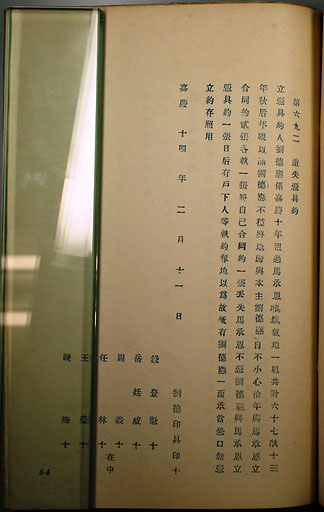 第六九二　遺失退具約
立退具約人劉德廳係嘉慶十年間過馬承恩地一塊共計六十七畝十三
年秋后年限以滿劉德廳不種將地歸與本主劉德廳自不小心拾年與馬承恩立
合同約貳張各執一張將自己合同約一張丟失馬承恩不退劉德廳與馬承恩立
退具約一張日后有戶下人等執約奪地以爲故紙有劉德廳一面承當恐口無憑
立約存照用
嘉慶　十四　年　二　月　十一　日
劉德印具印十
錢登魁十
岳廷威十
周義十
任林十　在中
王十
海十
54